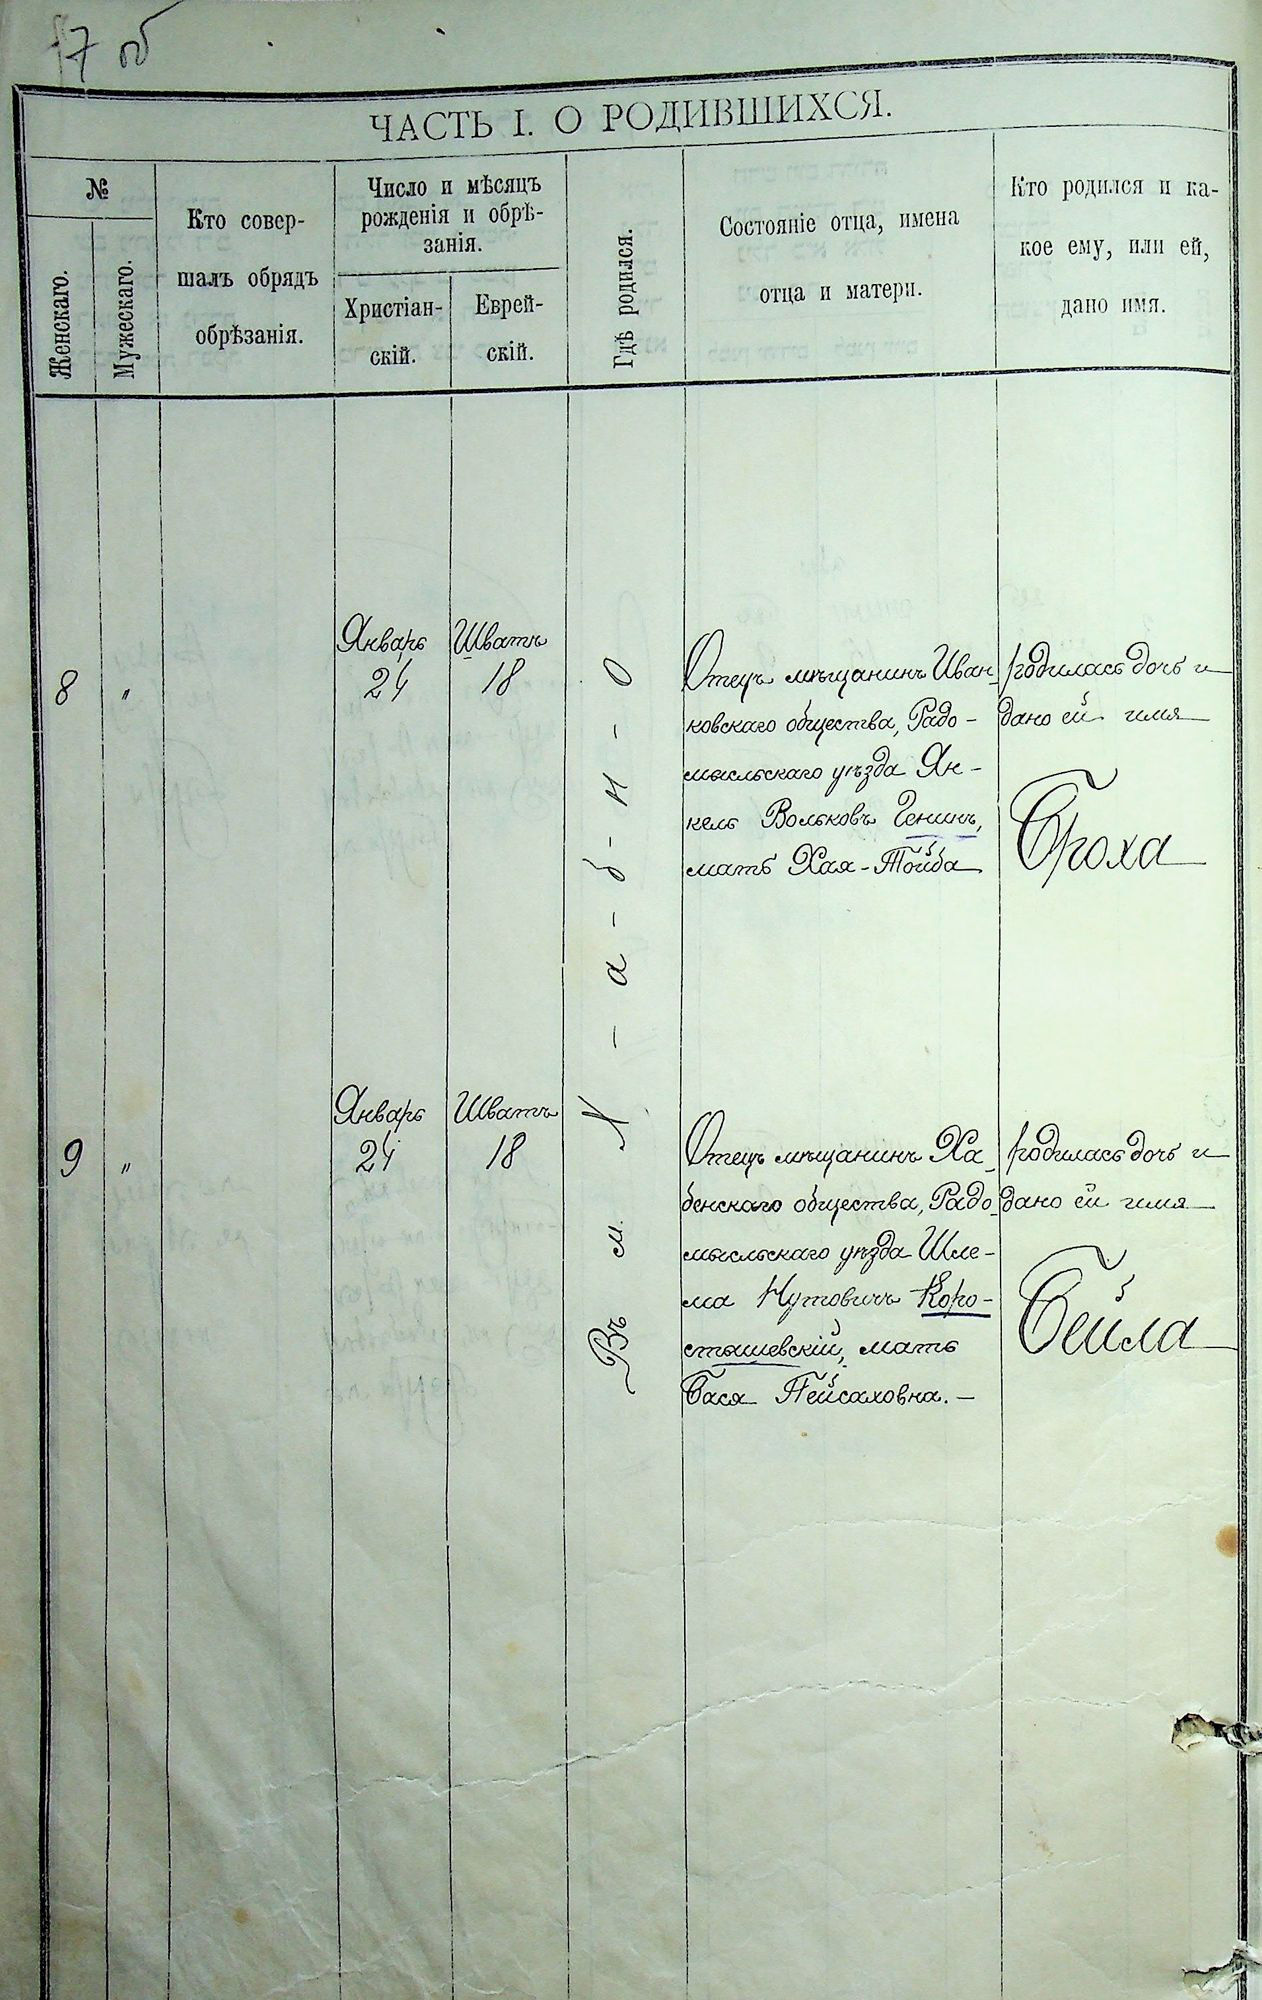 17 об
ЧАСТЬ I. О РОДИВШИХСЯ.
№
Женскаго.
Мужескаго.
Кто совер-
шалъ обрядъ
обрѣзанія.
Число и мѣсяцъ
рожденія и обрѣ-
занія.
Христіан-
скій.
Еврей-
скій.
Гдѣ родился.
Состояніе отца, имена
отца и матери.
Кто родился и ка-
кое ему, или ей,
дано имя.
8
"
Январь
24
Шватъ
18
Въ м. Х-а-б-н-о
Отецъ мѣщанинъ Иван-
ковскаго общества, Радо-
мысльскаго уѣзда Ян-
кель Вольковъ Генинъ,
мать Хая-Тойба
родилась дочь и
дано ей имя
Броха
9
"
Январь
24
Шватъ
18
Отецъ мѣщанинъ Ха-
бенскаго общества, Радо-
мысльскаго уѣзда Шле-
ма Нутовичъ Коро-
стышевскій, мать
Бася Пейсаховна.-
родилась дочь и
дано ей имя
Бейла